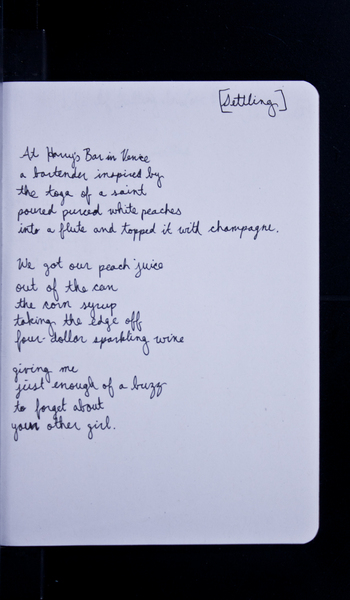 [Settling]
At Harry's Bar in Venice
a bartender inspired by
the toga of a saint
poured pureed white peaches
into a flute and topped it with champagne.
We got our peach juice
out of the can
the corn syrup
taking the edge off
four-dollar sparkling wine
giving me
just enough of a buzz
to forget about
your other girl.